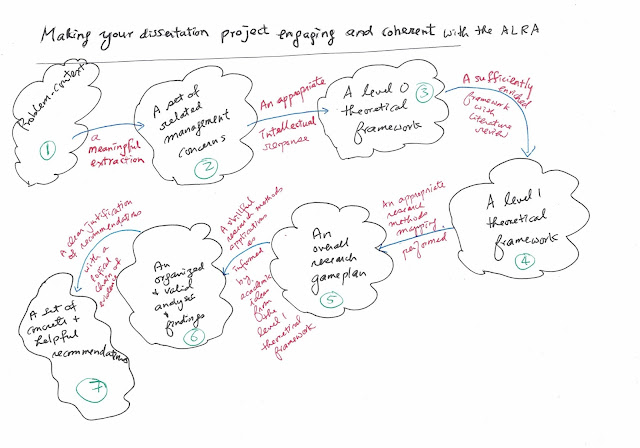 Making your dissertation project engaging and coherent with the ALRA
Problem-context
1
a
meaningful
extraction
A set of
related
management
concerns
2
An appropriate
Intellectual
response
A level 0
theoretical
frameworks
3
A sufficiently
enriched
framework
with
literature
review
A level 1
theoretical
frameworks
4
An appropriate
research
methods
mapping
performed
An
overall
research
gameplan
5
A skillful
research methods
application
informed
by
academic
ideas
from
the
level 1
theoretical
framework
An
organized
+ valid
analysis
+
findings
6
A clear justification
of recommendations
with a
logical
chain of
evidence
A set of
concrete +
helpful
recommendations
7